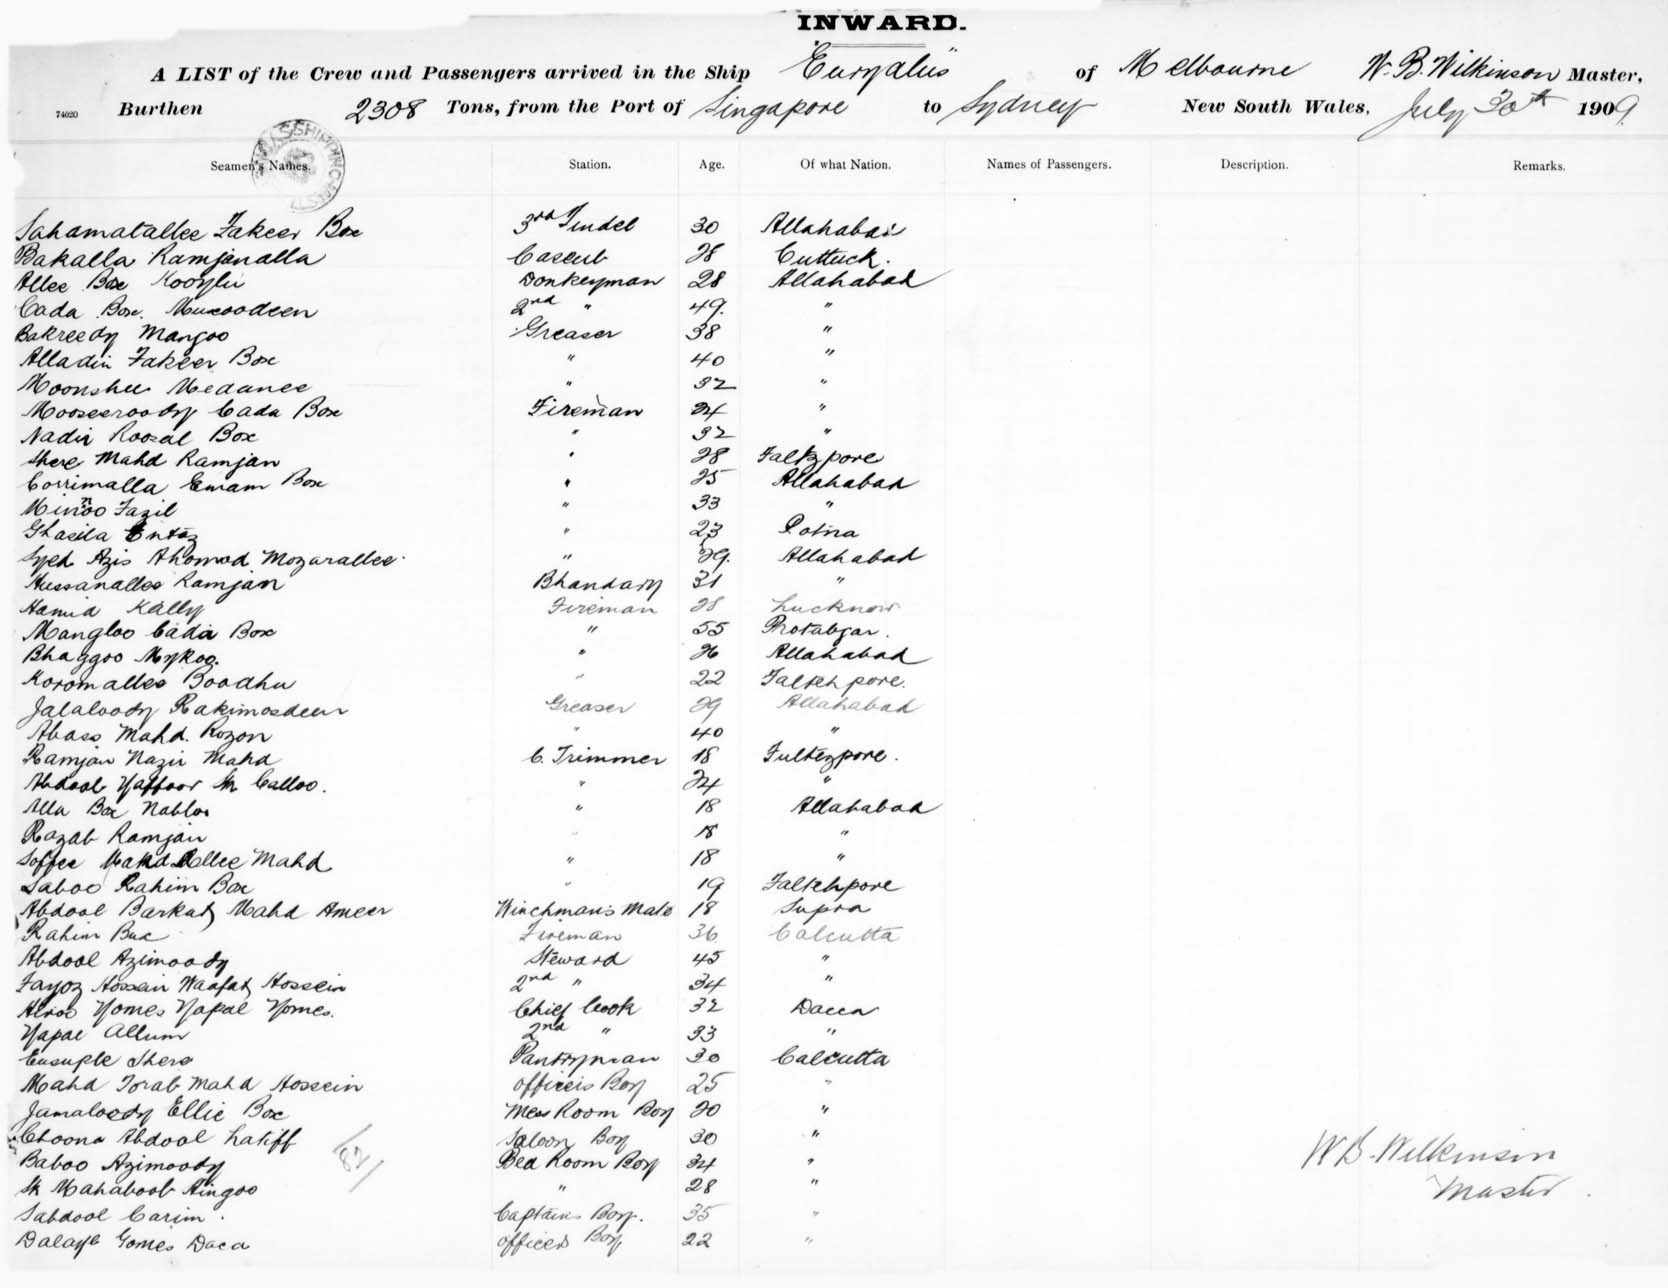 INWARD.
A LIST of the Crew and Passengers arrived in the Ship "Euryalus" of Melbourne W. B. Wilkinson Master,
74020 Burthen 2308 Tons, from the Port of Singapore to Sydney New South Wales, July 30th 1909.
Seamen's Names. Station. Age. Of what Nation. Names of Passengers. Description. Remarks.
Sahamatallee Fakeer Box 3rd Tindel 30 Allahabad
Bakalla Ramjanalla Casub 28 Cuttuck.
Allee Box Kooylu Donkeyman 28 Allahabad
Cada Box. 2nd " 49. "
Bakreedy Mangoo Greaser 38 "
Alladin Fakeer Box " 40 "
Moonshee Medanee " 32 "
Mooseeroody Cada Box Fireman 24 "
Nadir Roosal Box " 32 "
Shere Mahd Ramjan " 28
Corrimalla Emam Box " 25 Allahabad
Minoo Fazil " 33 "
Ghasita " 23 Patna
Syed Azis Ahomod Mozarallee " 29. Allahabad
Hussanallee Ramjan Bhandary 31 "
Hamid Kally Fireman 28 Lucknow
Mangloo Cada Box " 55 Protabgar.
Bhaggoo Mykoo. " 26 Allahabad
Koromallee Boodhu " 22 Faltehpore.
Jalaloody Rakimosdeen Greaser 29 Allahabad
Abass Mahd. Rozon " 40 "
Ramjan Nazir Mahd C. Trimmer 18 Fultezpore.
Abdool Gaffoor Sk Calloo. " 24 "
Alla Box Nabloo " 18 Allahabad
Razab Ramjan " 18 "
Soffee Mahd Allee Mahd " 18 "
Saboo Rahim Box " 19 Faltehpore
Abdool Barkat Mahd Ameer Winchman's Mate 18 Supra
Rahim Bux Fireman 36 Calcutta
Abdool Azimoody Steward 45 "
Fayoz Hossein Waafat Hossein 2nd " 34 "
Gomes Gapal Gomes. Chief Cook 32 Dacca
Gapal Allum 2nd " 33 "
Eusuple Shere Pantryman 30 Calcutta
Mahd Torab Mahd Hossein Officers Boy 25 "
Jamaloody Ellie Box Mess Room Boy 20 "
Choona Abdool Latiff Saloon Boy 30 "
Baboo Azimoody Bed Room Boy 34 "
Sk Mahaboob Aingoo " 28 "
Sabdool Carim. Captains Boy. 35 "
Gomes Daca Officers Boy 22 "
82
W B. Wilkinson
Master.